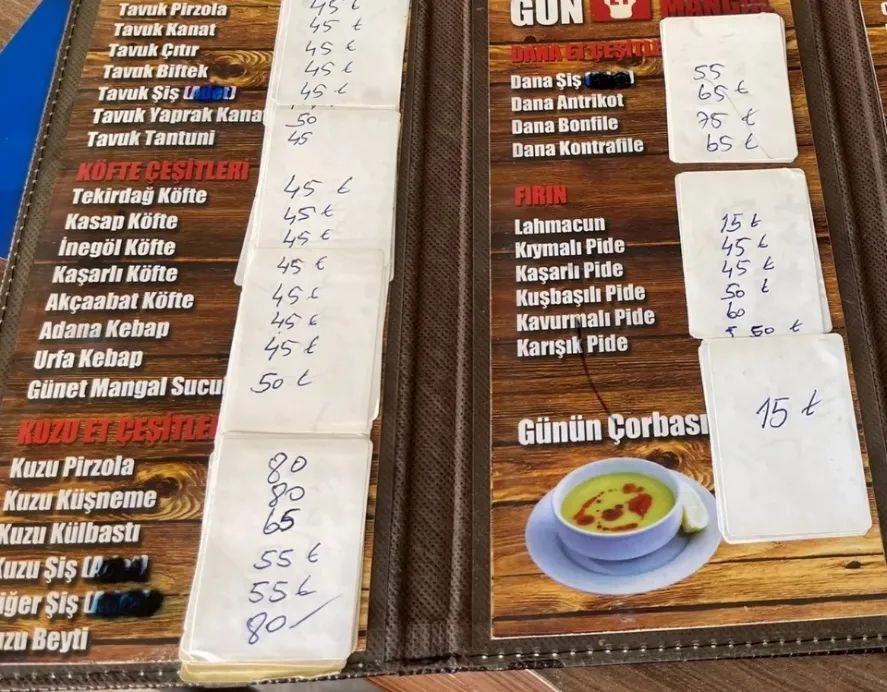 Tavuk Pirzola 45 ₺
Tavuk Kanat 45 ₺
Tavuk Çıtır 45 ₺
Tavuk Biftek 45 ₺
Tavuk Şiş (Adet) 45 ₺
Tavuk Yaprak Kana 50
Tavuk Tantuni 45
KÖFTE ÇEŞİTLERİ
Tekirdağ Köfte 45 ₺
Kasap Köfte 45 ₺
İnegöl Köfte 45 ₺
Kaşarlı Köfte 45 ₺
Akçaabat Köfte 45 ₺
Adana Kebap 45 ₺
Urfa Kebap 45 ₺
Günet Mangal Sucu 50 ₺
KUZU ET ÇEŞİTLE
Kuzu Pirzola 80
Kuzu Küşneme 80
Kuzu Külbastı 65
Kuzu Şiş 55 ₺
iğer Şiş 55 ₺
uzu Beyti 80
GÜN
DANA ET ÇEŞİTLE
Dana Şiş 55
Dana Antrikot 65 ₺
Dana Bonfile 75 ₺
Dana Kontrafile 65 ₺
FIRIN
Lahmacun 15 ₺
Kıymalı Pide 45 ₺
Kaşarlı Pide 45 ₺
Kuşbaşılı Pide 50 ₺
Kavurmalı Pide 60
Karışık Pide 50 ₺
Günün Çorbası 15 ₺